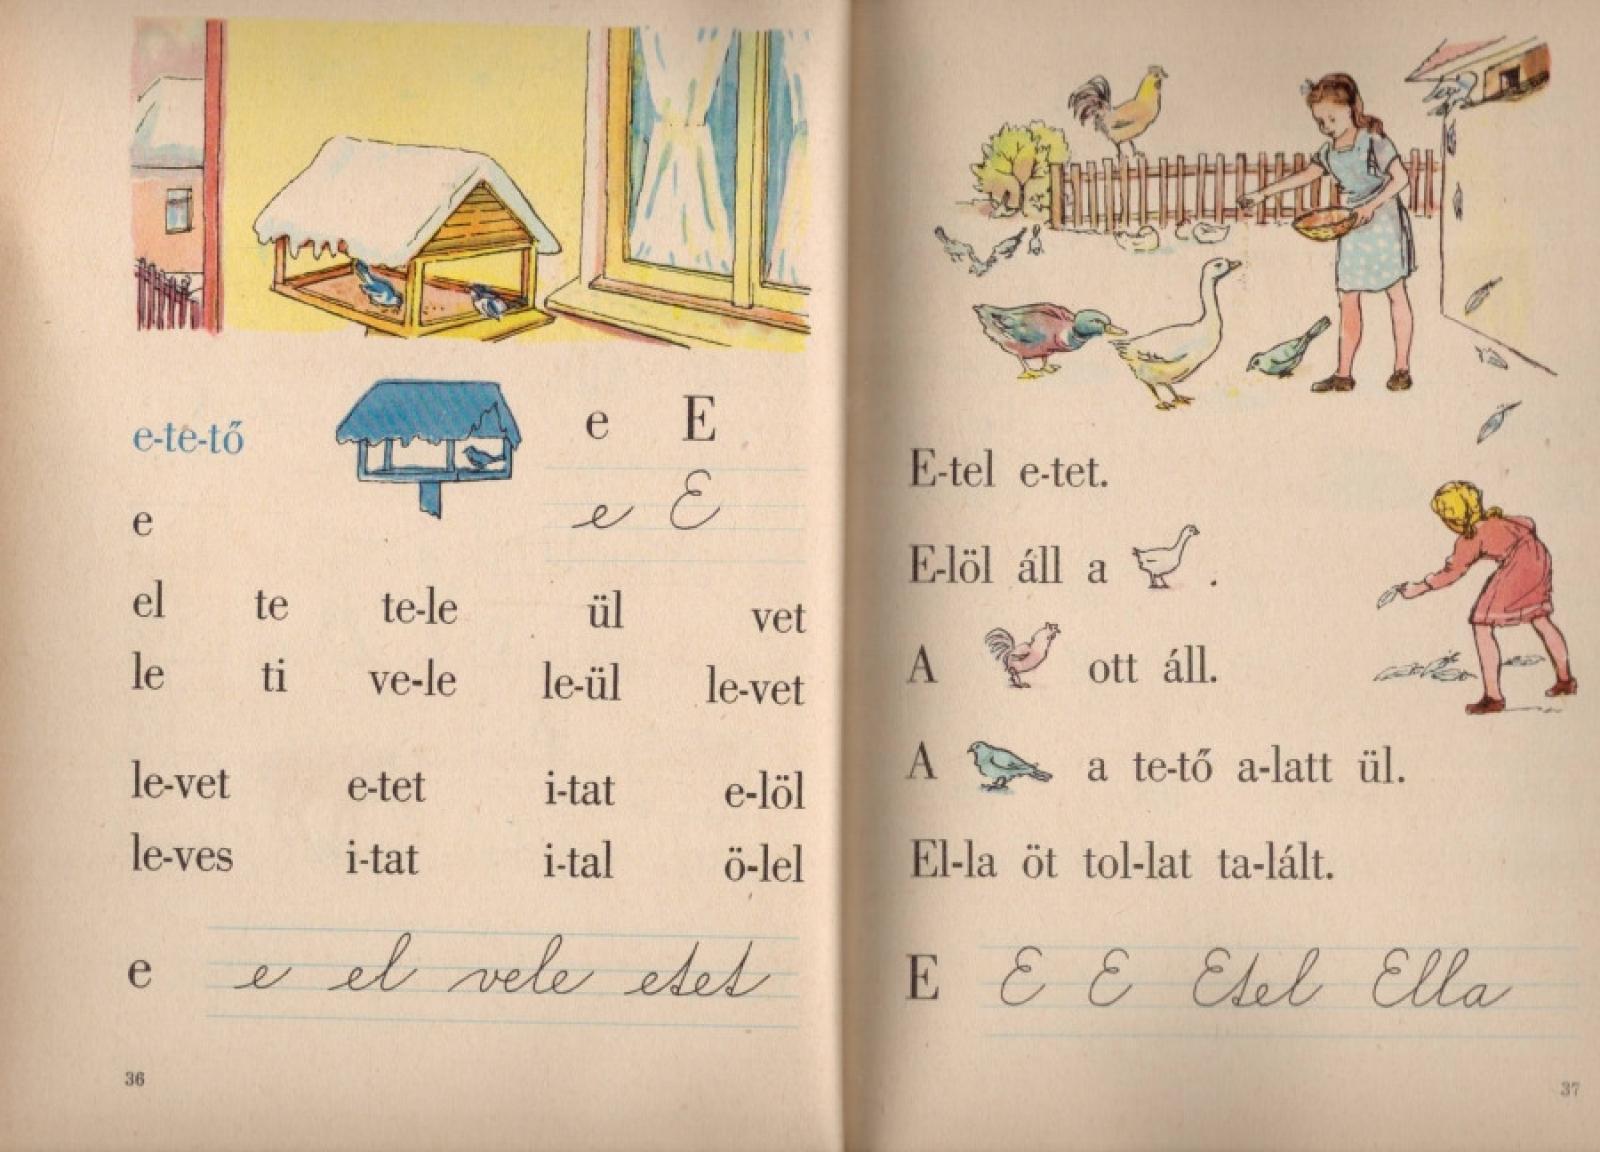 e-te-tő
e E
e E
e
el te te-le ül vet
le ti ve-le le-ül le-vet
le-vet e-tet i-tat e-löl
le-ves i-tat i-tal ö-lel
e e el vele etet
36
E-tel e-tet.
E-löl áll a .
A ott áll.
A a te-tő a-latt ül.
El-la öt tol-lat ta-lált.
E E E Etel Ella
37